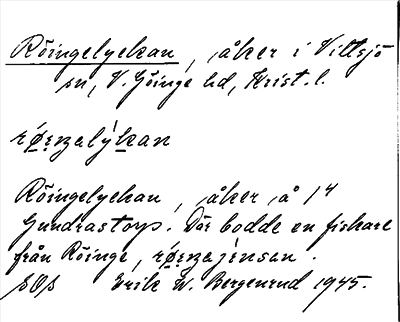 Röingelyckan, åker i Vittsjö
sn, V. Göinge hd, Krist. l.
Röingelyckan, åker å 14
Gundrastorp. Där bodde en fiskare
från Röinge,
SOS Erik W. Bergenrud 1945.